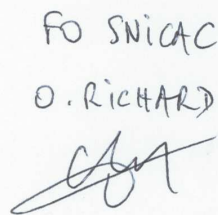 FO SNICAC
O. RICHARD